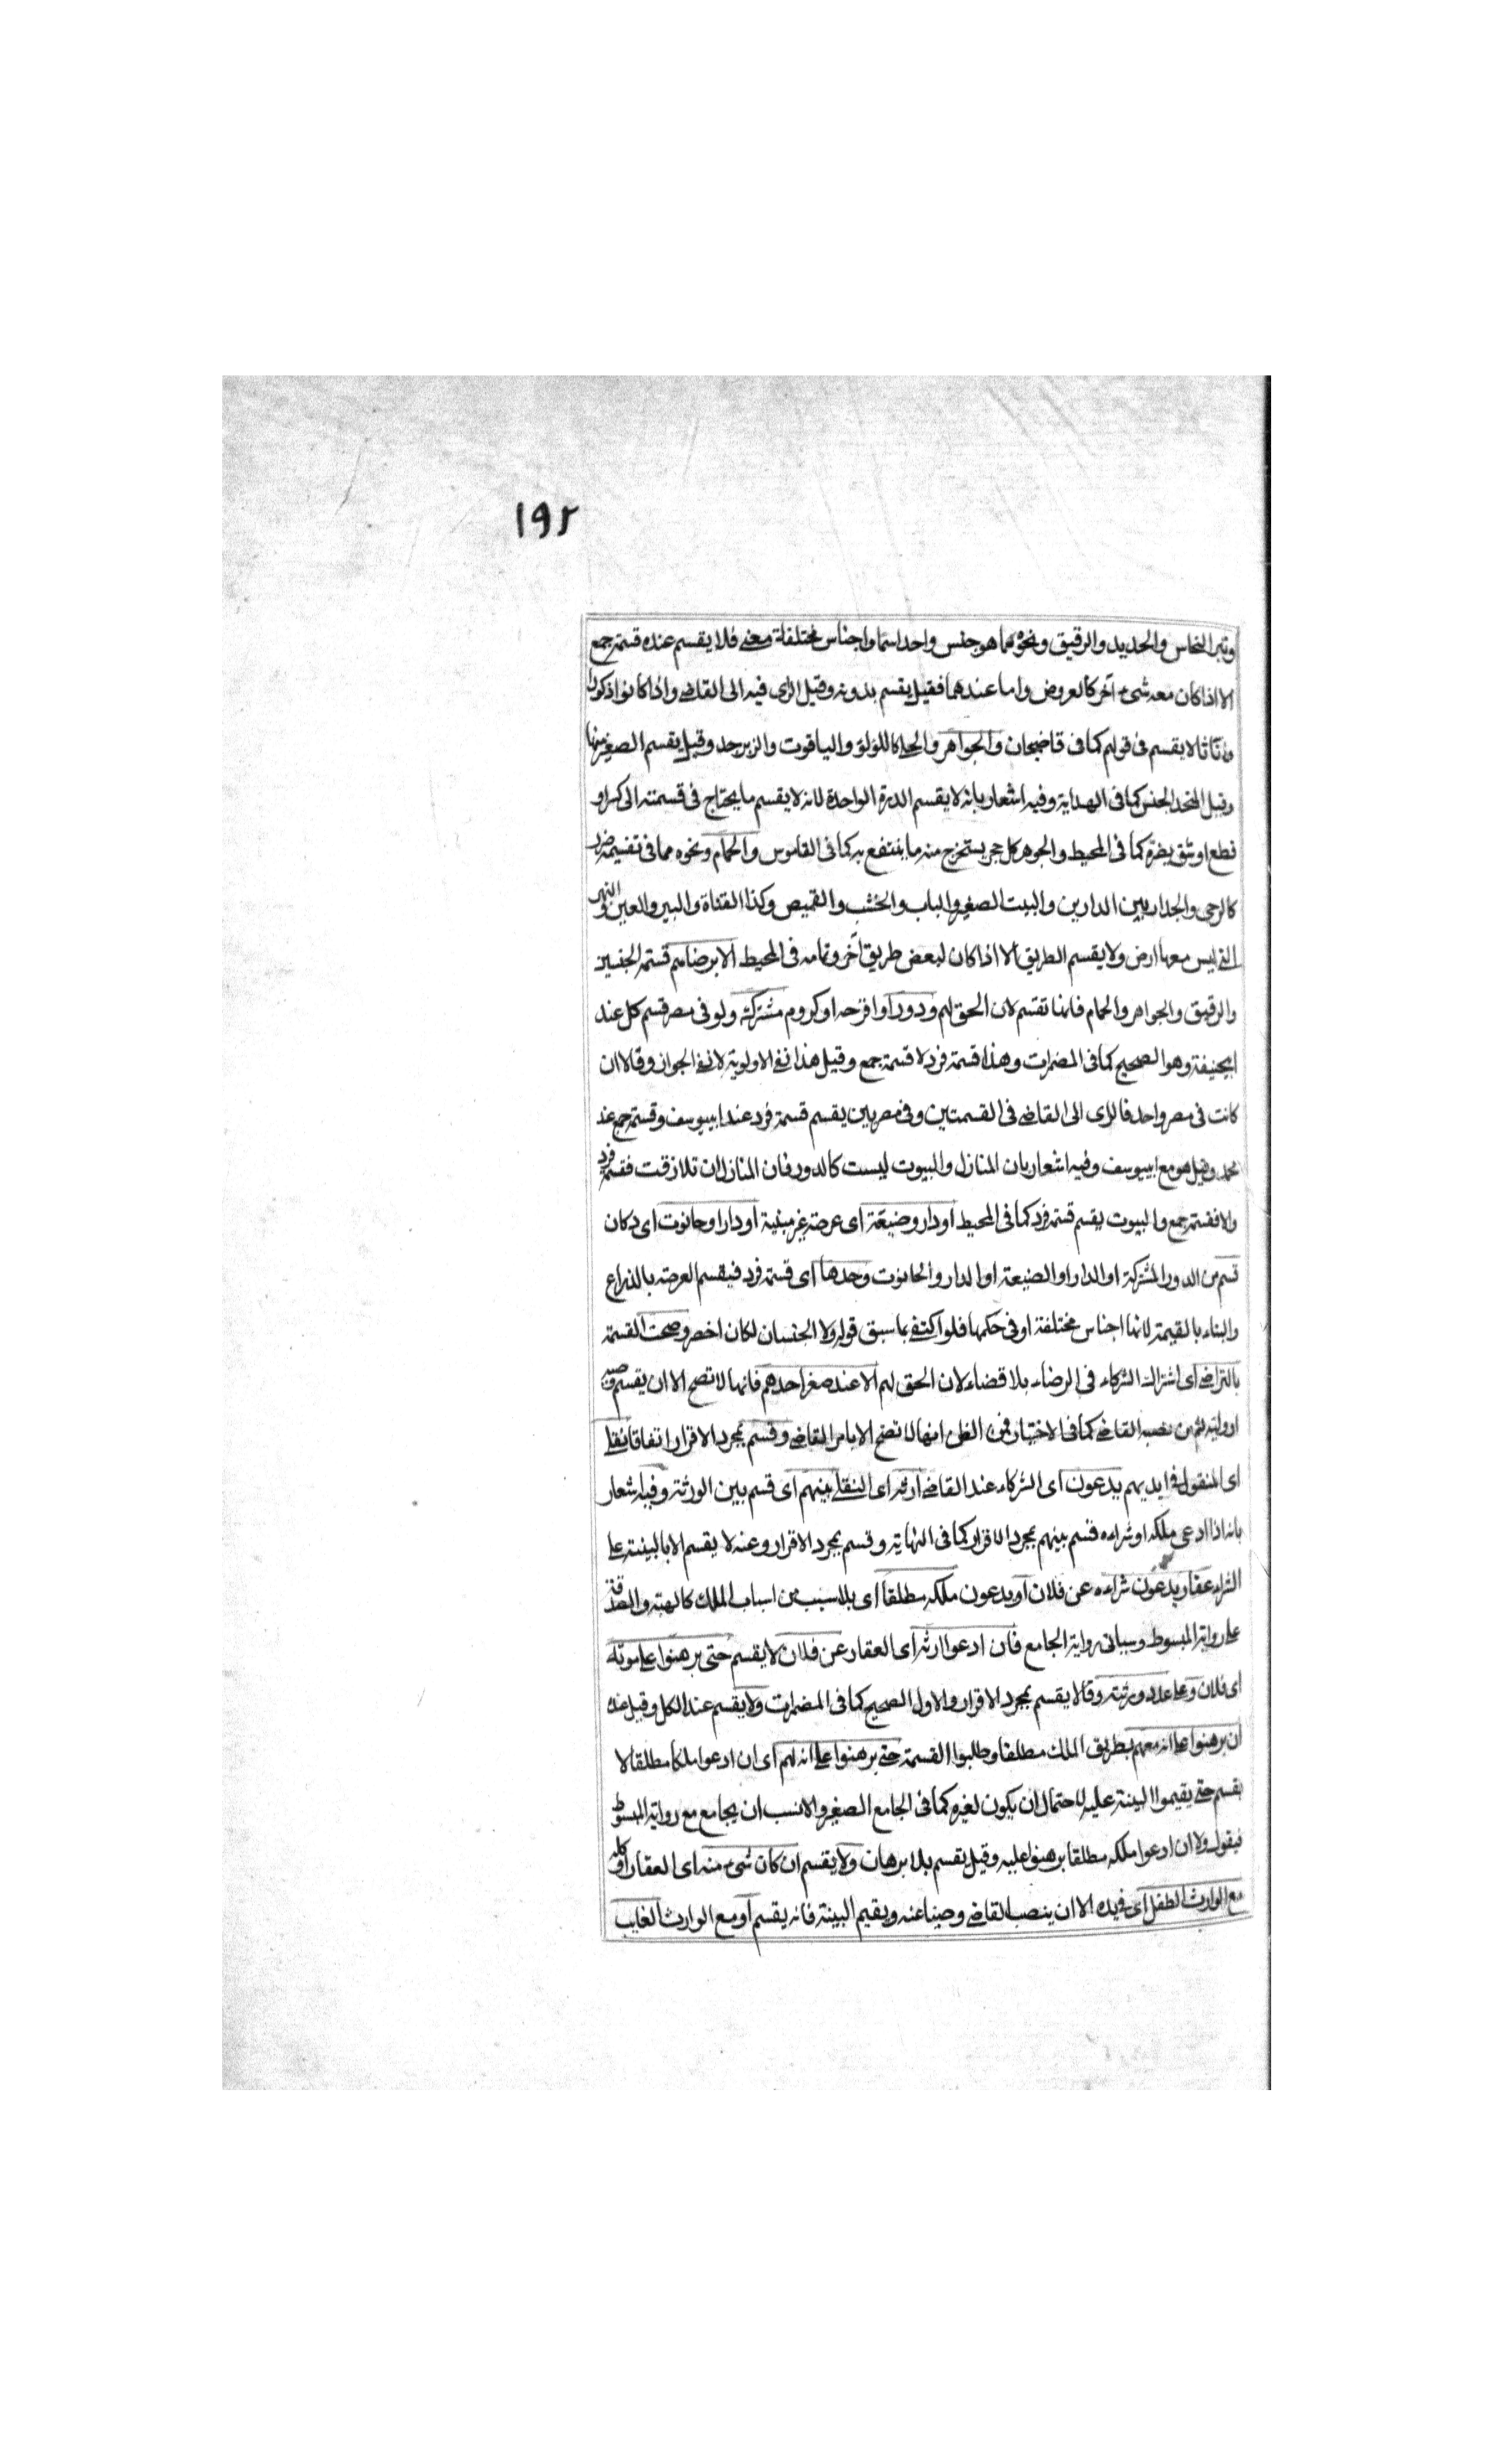 ١٩٢
وتبر النحاس والحديد والرقيق ونحوه مما هو جنس واحد اسما واجناس مختلفة معنى فلا يقسم عنده قسمة جمع
الا اذا كان معه شئ آخر كالعروض واما عندهما فقيل يقسم بدونه وقيل الراى فيه الى القاضى واذا كانوا ذكورا
واناثا لا يقسم فى قولهم كما فى قاضيخان والجواهر والحلى كاللؤلؤ والياقوت والزبرجد وقيل يقسم الصغير منها
وقيل المتحد الجنس كما فى الهداية وفيه اشعار بانه لا يقسم الدرة الواحدة لانه لا يقسم ما يحتاج فى قسمته الى كسر او
قطع او شق يضره كما فى المحيط والجوهر كل حجر يستخرج منه ما ينتفع به كما فى القاموس والحمام ونحوه مما فى تقسيمه ضرر
كالرحى والجدار بين الدارين والبيت الصغير والباب والخشب والقميص وكذا القناة والبير والعين والنهر
التى ليس معها ارض ولا يقسم الطريق الا اذا كان لبعض طريق آخر وتمامه فى المحيط الا برضاهم قسمة الجنسين
والرقيق والجواهر والحمام فانها تقسم لان الحق لهم ودور او اقرحة او كروم مشتركة ولو فى مصر قسم كل عند
ابيحنيفة وهو الصحيح كما فى المضمرات وهذا قسمة فرد لا قسمة جمع وقيل هذا نفى الاولوية لا نفى الجواز وقالا ان
كانت فى مصر واحد فالراى الى القاضى فى القسمتين وفى مصرين يقسم قسمة فرد عند ابييوسف وقسمة جمع عند
محمد وقيل هو مع ابييوسف وفيه اشعار بان المنازل والبيوت ليست كالدور فان المنازل ان تلازقت فقسمة فرد
والا فقسمة جمع والبيوت يقسم قسمة فرد كما فى المحيط او دار وضيعة اى عرصة غير مبنية او دار او حانوت اى دكان
قسم من الدور المشتركة او الدار او الضيعة او الدار والحانوت وحدها اى قسمة فرد فيقسم العرصة بالذراع
والبناء بالقيمة لانها اجناس مختلفة او فى حكمها فلو اكتفى بما سبق قوله ولا الجنسان لكان اخصر وصحت القسمة
بالتراضى اى اشتراك الشركاء فى الرضاء بلا قضاء لان الحق لهم الا عند صغر احدهم فانها لا تصح الا ان يقسم وصيه
او وليه ثم من نصبه القاضى كما فى الاختيار فمن الظن انها لا تصح الا بامر القاضى وقسم بمجرد الاقرار اتفاقا نقلى
اى المنقول فى ايديهم يدعون اى الشركاء عند القاضى ارثه اى النقلى بينهم اى قسم بين الورثة وفيه اشعار
بانه اذا ادعى ملكه او شراءه قسم بينهم بمجرد الاقرار كما فى النهاية وقسم بمجرد الاقرار وعنه لا يقسم الا بالبينة على
الشراء عقار يدعون شراءه عن فلان او يدعون ملكه مطلقا اى بلا سبب من اسباب الملك كالهبة والصدقة
على رواية المبسوط وسياتى رواية الجامع فان ادعوا ارثه اى العقار عن فلان لا يقسم حتى برهنوا على موته
اى فلان وعلى عدد ورثته وقالا يقسم بمجرد الاقرار والاول الصحيح كما فى المضمرات ولا يقسم عند الكل وقيل عنده
ان برهنوا على انه معهم بطريق الملك مطلقا وطلبوا القسمة حتى برهنوا على انه لهم اى ان ادعوا ملكا مطلقا لا
يقسم حتى يقيموا البينة عليه لاحتمال ان يكون لغيره كما فى الجامع الصغير والانسب ان يجامع مع رواية المبسوط
فيقول ولا ان ادعوا ملكه مطلقا برهنوا عليه وقيل يقسم بلا برهان ولا يقسم ان كان شئ منه اى العقار او كله
مع الوارث الطفل اى فى يده الا ان ينصب القاضى وصيا عنه ويقيم البينة فانه يقسم او مع الوارث الغايب